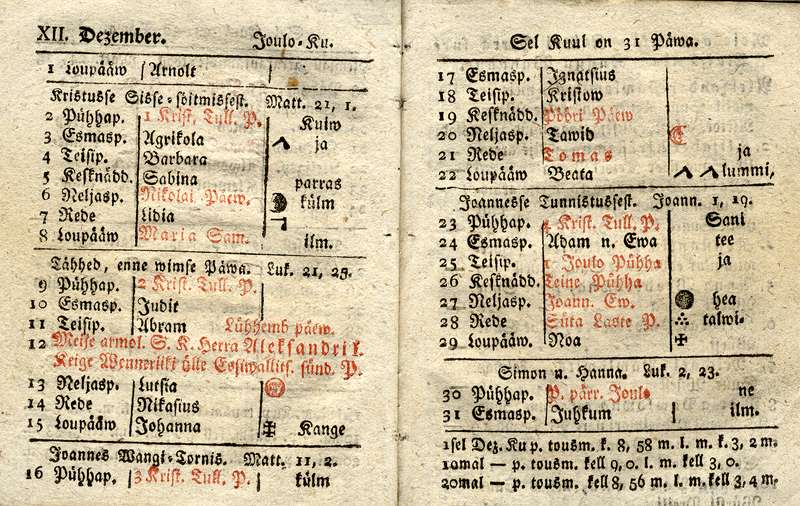 XII. Dezember. Joulo-Ku.
1 Loupääw Arnolt
Kristusse Sisse-sõitmisfest. Matt. 21, 1.
2 Pühhap. 1 Krist. Tull. P. Kuiw
3 Esmasp. Agrikola ja
4 Teisip. Barbara
5 Kesknädd. Sabina parras
6 Neljasp. Nikolai Päew. külm
7 Rede Lidia
8 Loupääw Maria Sam. ilm.
Tähhed, enne wimse Päwa. Luk. 21, 25.
9 Pühhap. 2 Krist. Tull. P.
10 Esmasp. Judit
11 Teisip. Abram Lühhemb päew.
12 Meije armol. S. K. Herra Aleksandri I.
Keige Wennerliki ülle Eosiwallits. sünd. P.
13 Neljasp. Lutsia
14 Rede Nikasius
15 Loupääw Johanna Kange
Joannes Wangi-Tornis. Matt. 11, 2.
16 Pühhap. 3 Krist. Tull. P. külm
Sel Kuul on 31 Päwa.
17 Esmasp. Ignatsius
18 Teisip. Kristow
19 Kesknädd. Pöhri Päew
20 Neljasp. Tawid
21 Rede Tomas ja
22 Loupääw Beata lummi,
Joannesse Tunnistusfest. Joann. 1, 19.
23 Pühhap. 4 Krist. Tull. P. Sani
24 Esmasp. Adam n. Ewa tee
25 Teisip. 1 Joulo Pühha ja
26 Kesknädd. Teine Pühha
27 Neljasp. Joann. Ew. hea
28 Rede Süta Laste P. talwi-
29 Loupääw Noa
Simon n. Hanna. Luk. 2, 23.
30 Pühhap. P. pärr. Joulo ne
31 Esmasp. Juhkum ilm.
1sel Dez. Ku p. tousm. k. 8, 58 m. l. m. k. 3, 2 m.
10mal — p. tousm. kell 9, 0. l. m. kell 3, 0.
20mal — p. tousm. kell 8, 56 m. l. m. kell 3, 4 m.